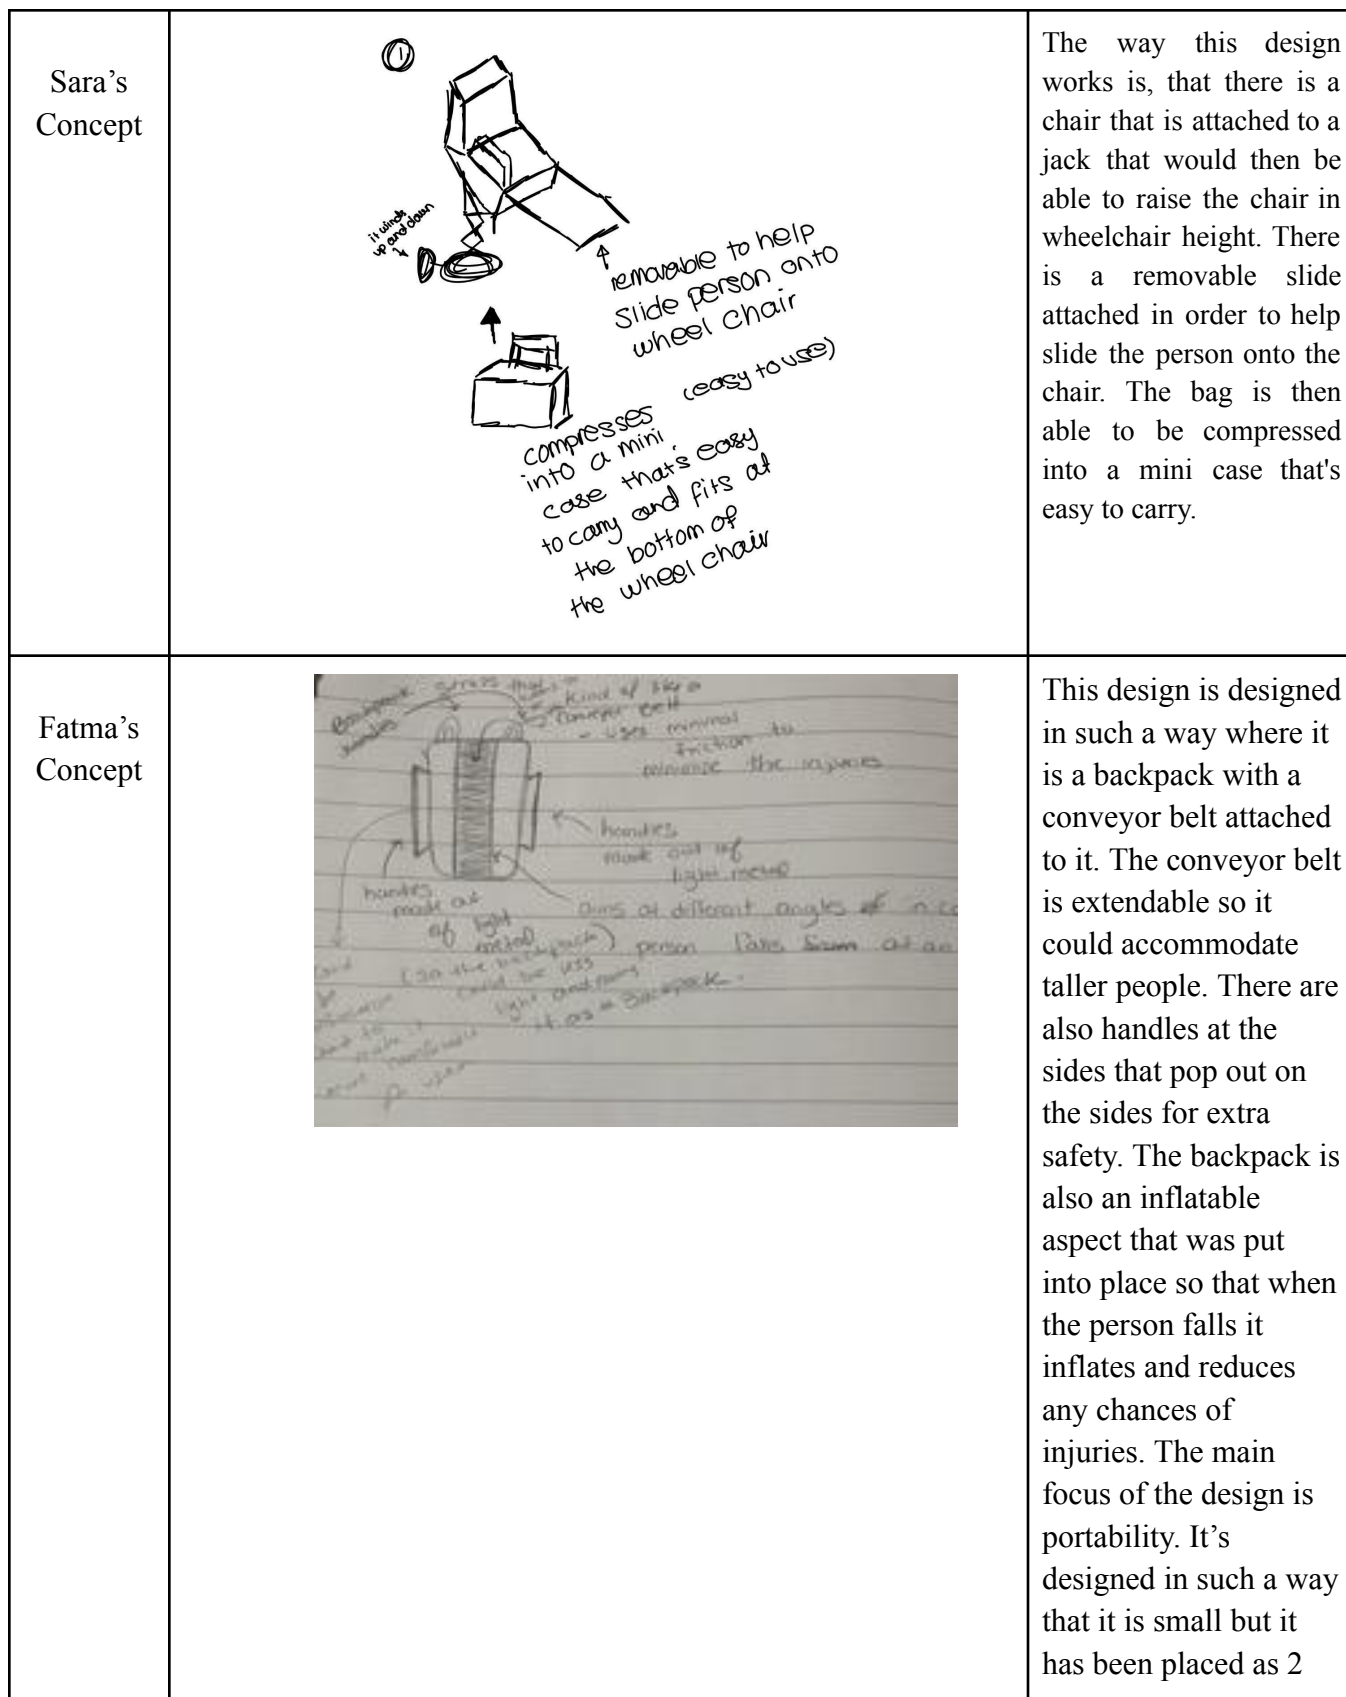 Sara’s
Concept
1
it winds
up and down
removable to help
slide person onto
wheel chair
(easy to use)
compresses
into a mini
case that's easy
to carry and fits at
the bottom of
the wheel chair
The way this design
works is, that there is a
chair that is attached to a
jack that would then be
able to raise the chair in
wheelchair height. There
is a removable slide
attached in order to help
slide the person onto the
chair. The bag is then
able to be compressed
into a mini case that's
easy to carry.
Fatma’s
Concept
Backpack straps that
handles
kind of like a
conveyor belt
- uses minimal
friction to
minimize the injuries
handles
made out of
light metal
handles
made out
of light
metal
aims at different angles of in ca
person
(so the backpack)
could be
light and
it as a Backpack.
This design is designed
in such a way where it
is a backpack with a
conveyor belt attached
to it. The conveyor belt
is extendable so it
could accommodate
taller people. There are
also handles at the
sides that pop out on
the sides for extra
safety. The backpack is
also an inflatable
aspect that was put
into place so that when
the person falls it
inflates and reduces
any chances of
injuries. The main
focus of the design is
portability. It’s
designed in such a way
that it is small but it
has been placed as 2